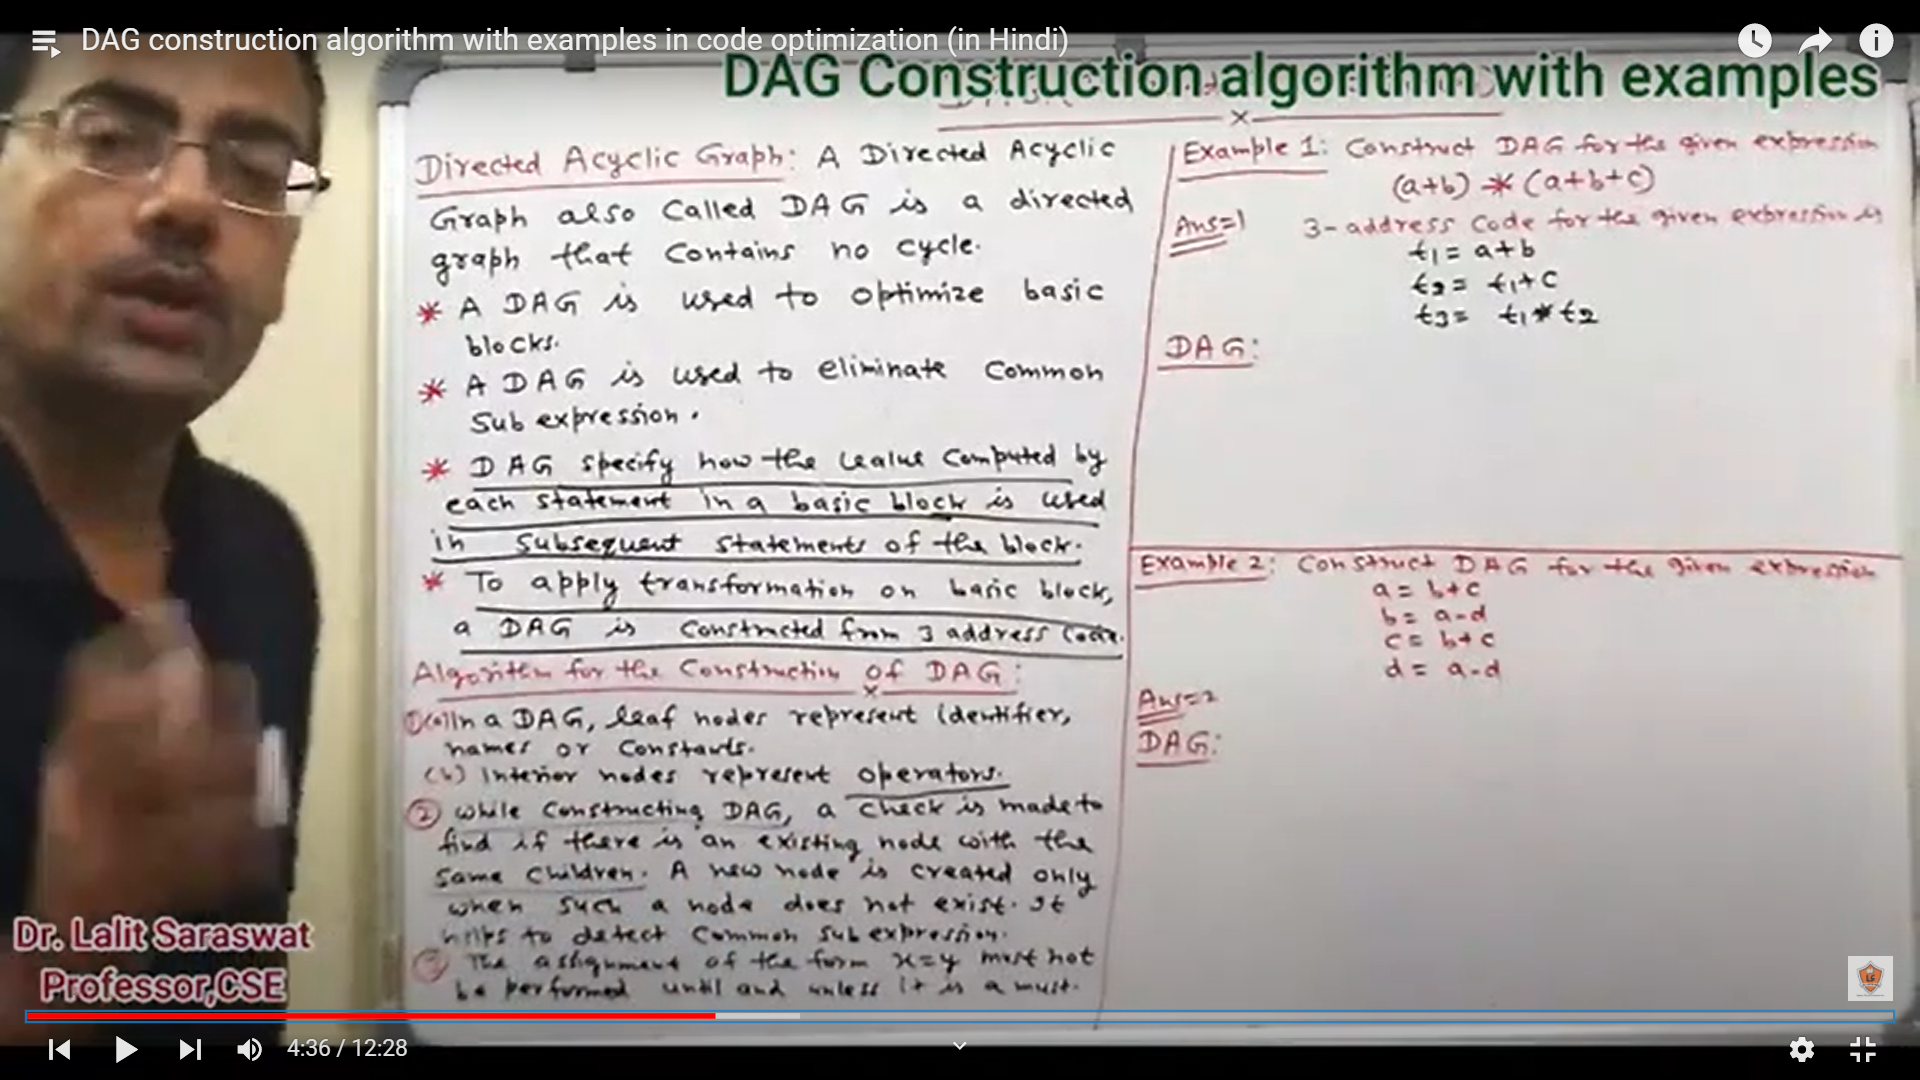 DAG construction algorithm with examples in code optimization (in Hindi)
DAG Construction algorithm with examples
Directed Acyclic Graph: A Directed Acyclic
Graph also Called DAG is a directed
graph that Contains no cycle.
* A DAG is used to optimize basic
blocks.
* A DAG is used to eliminate Common
Sub expression.
* DAG specify how the value Computed by
each statement in a basic block is used
in subsequent statements of the block.
* To apply transformation on basic block,
a DAG is Constructed from 3 address Code.
Algorithm for the Construction of DAG:
① (a) In a DAG, leaf nodes represent identifier,
names or Constants.
(b) Interior nodes represent operators.
② While Constructing DAG, a Check is made to
find if there is an existing node with the
Same Children. A new node is created only
when such a node does not exist. It
helps to detect Common Sub expression.
③ The assignment of the form x=y must not
be performed until and unless it is a must.
Example 1: Construct DAG for the given expression
(a+b) * (a+b+c)
Ans=1 3-address Code for the given expression is
t1 = a+b
t2 = t1+c
t3 = t1*t2
DAG:
Example 2: Construct DAG for the given expression
a = b+c
b = a-d
c = b+c
d = a-d
Ans=2
DAG:
Dr. Lalit Saraswat
Professor,CSE
4:36 / 12:28